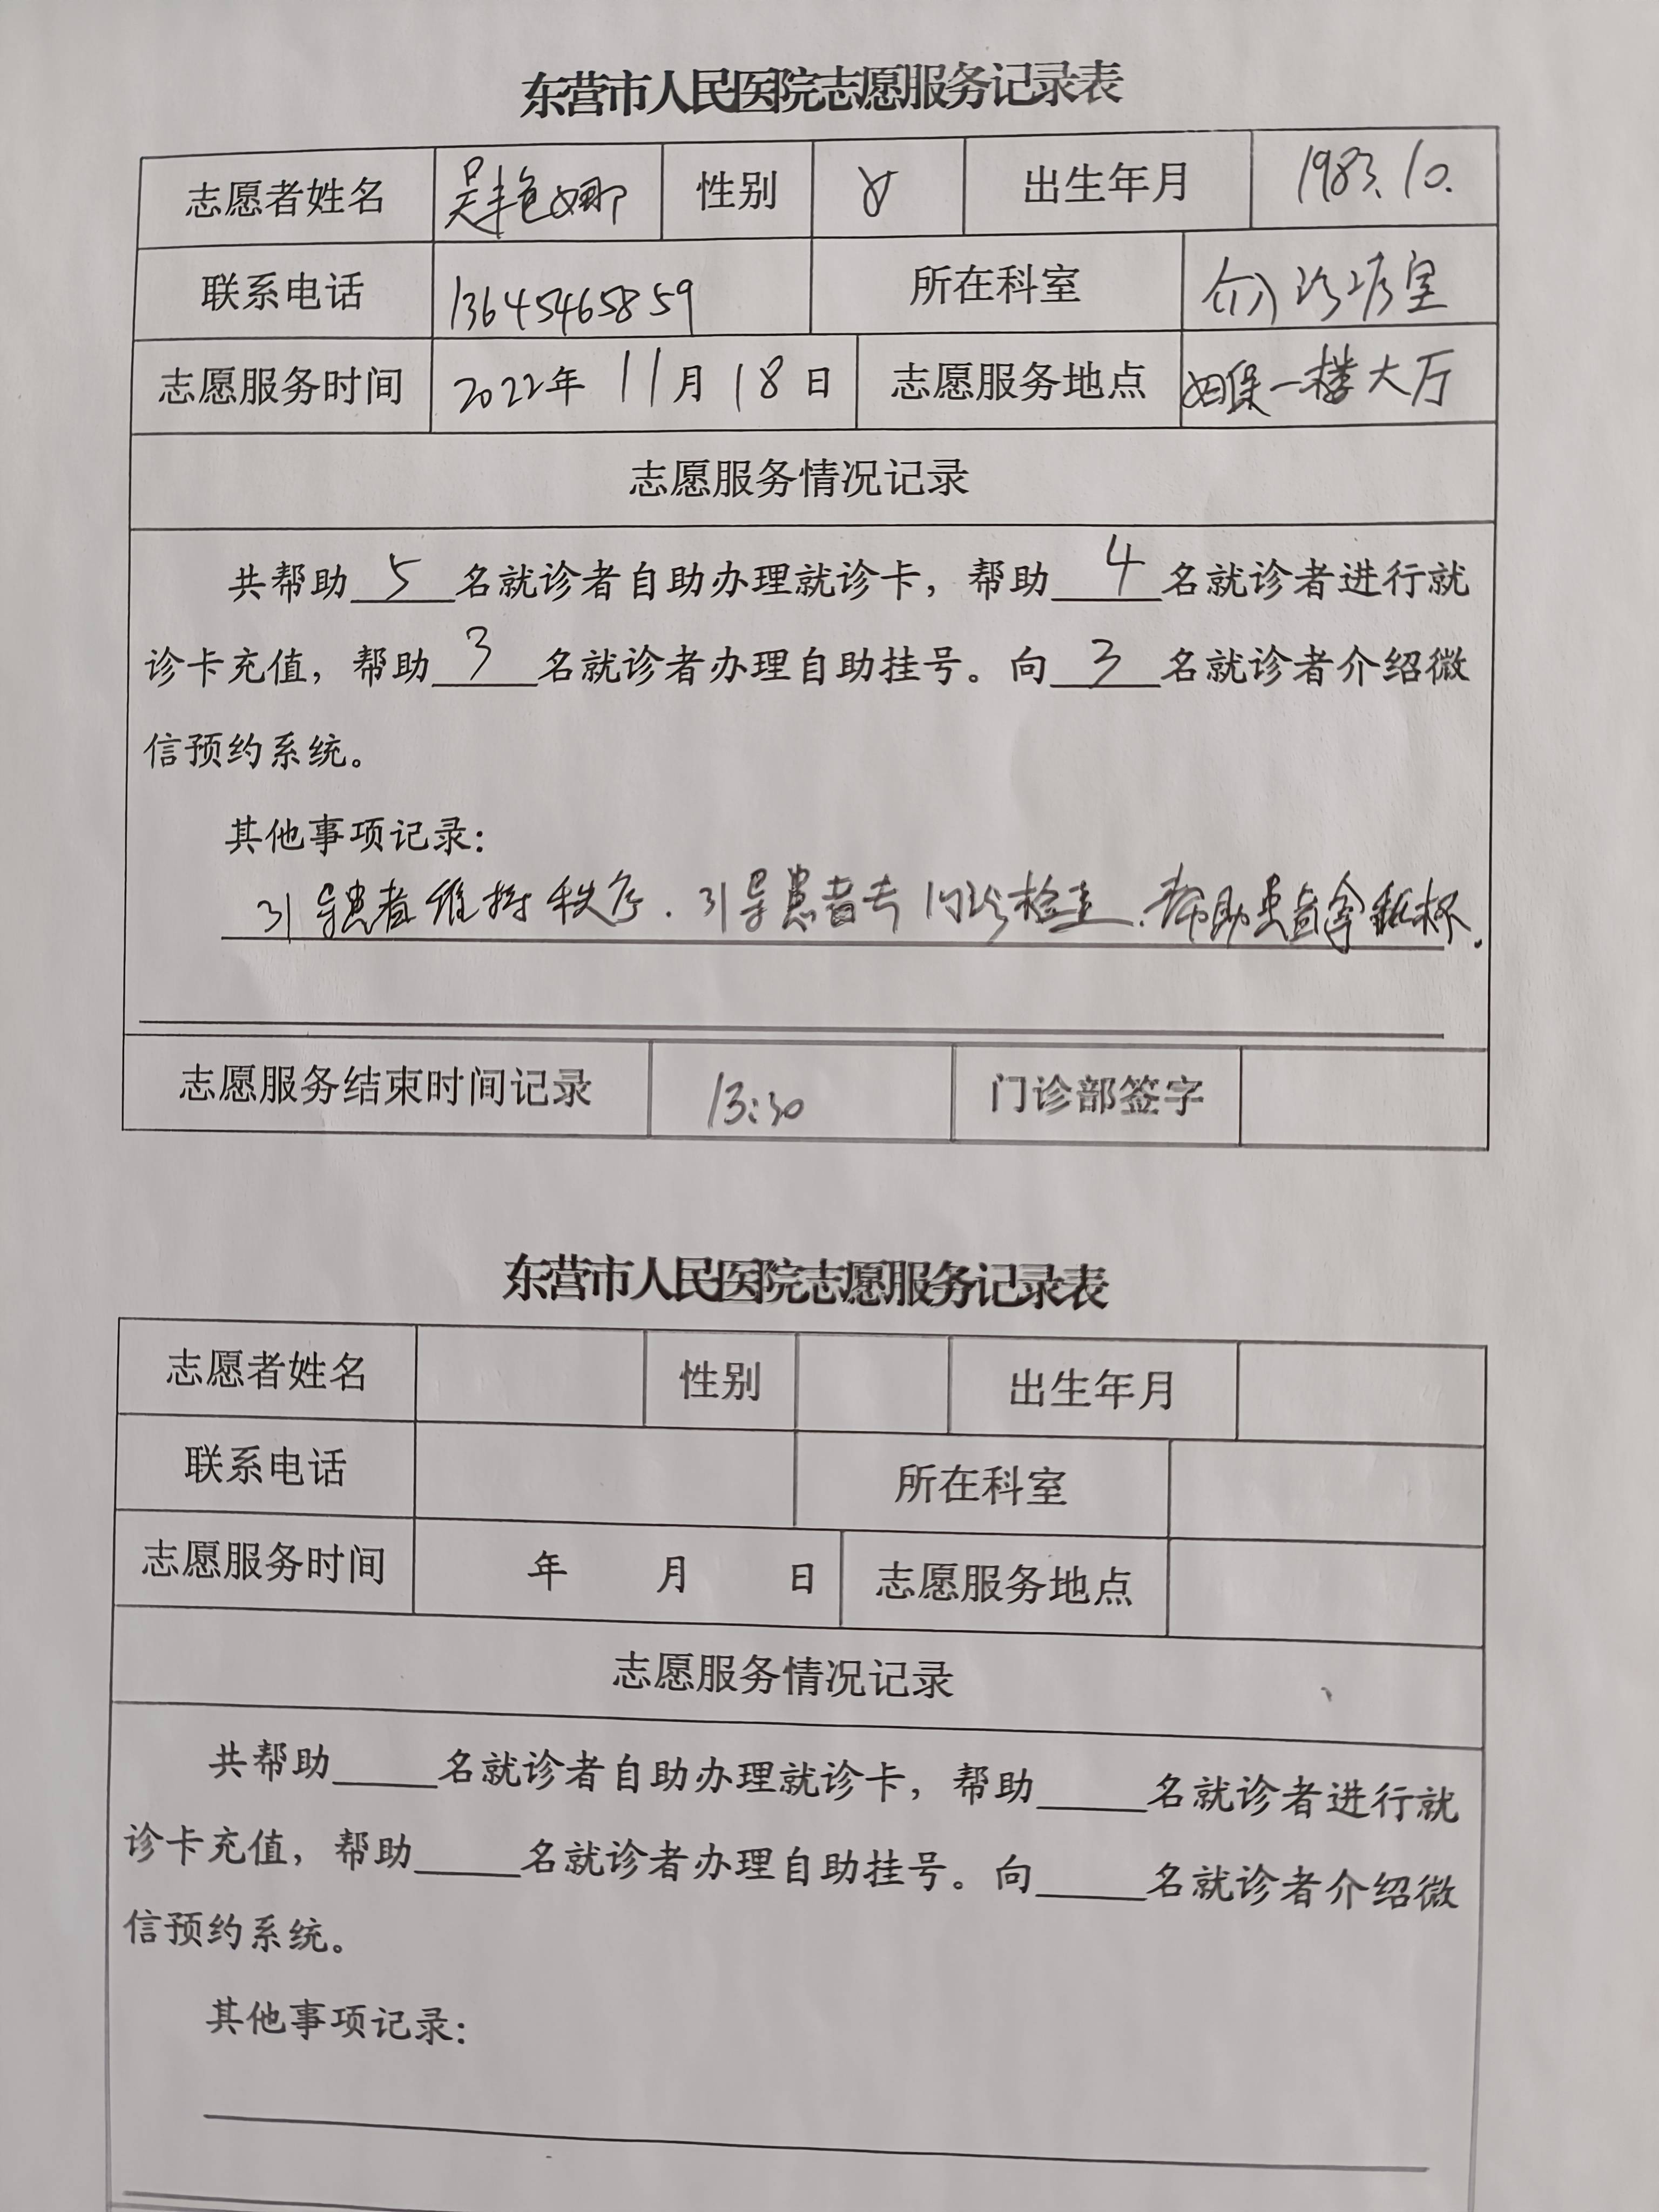 东营市人民医院志愿服务记录表
志愿者姓名 吴艳娜 性别 女 出生年月 1983.10.
联系电话 13645465859 所在科室 介入诊疗室
志愿服务时间 2022年 11月 18日 志愿服务地点 妇保一楼大厅
志愿服务情况记录
共帮助 5 名就诊者自助办理就诊卡，帮助 4 名就诊者进行就
诊卡充值，帮助 3 名就诊者办理自助挂号。向 3 名就诊者介绍微
信预约系统。
其他事项记录：
引导患者维持秩序．引导患者去门诊检查．帮助患者拿纸杯．
志愿服务结束时间记录 13:30 门诊部签字
东营市人民医院志愿服务记录表
志愿者姓名 性别 出生年月
联系电话 所在科室
志愿服务时间 年 月 日 志愿服务地点
志愿服务情况记录
共帮助_____名就诊者自助办理就诊卡，帮助_____名就诊者进行就
诊卡充值，帮助_____名就诊者办理自助挂号。向_____名就诊者介绍微
信预约系统。
其他事项记录：